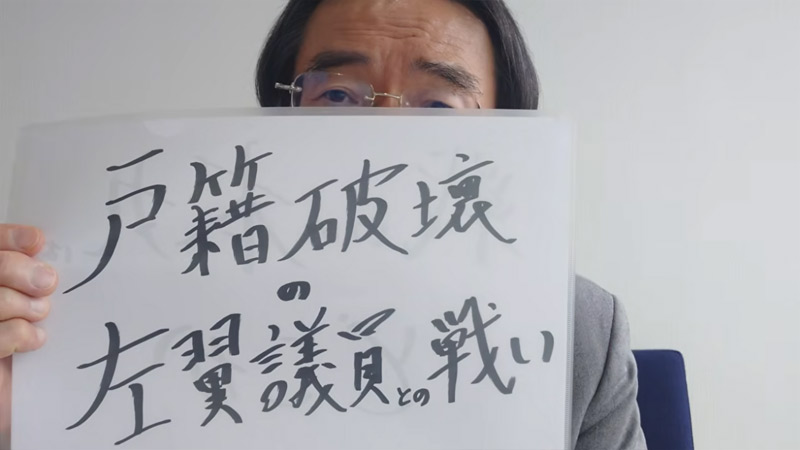 戸籍破壊
の
左翼議員との戦い